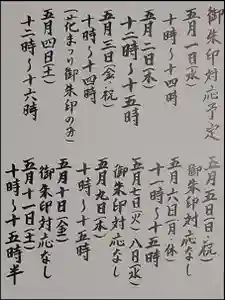 御朱印対応予定
五月一日(水)
十時〜十四時
五月二日(木)
十二時〜十五時
五月三日(金・祝)
十時〜十四時
(花まつり御朱印のみ)
五月四日(土)
十二時〜十六時
五月五日(日・祝)
御朱印対応なし
五月六日(月・休)
十一時〜十五時
五月七日(火)八日(水)
御朱印対応なし
五月九日(木)
十時〜十五時
五月十日(金)
御朱印対応なし
五月十一日(土)
十時〜十五時半